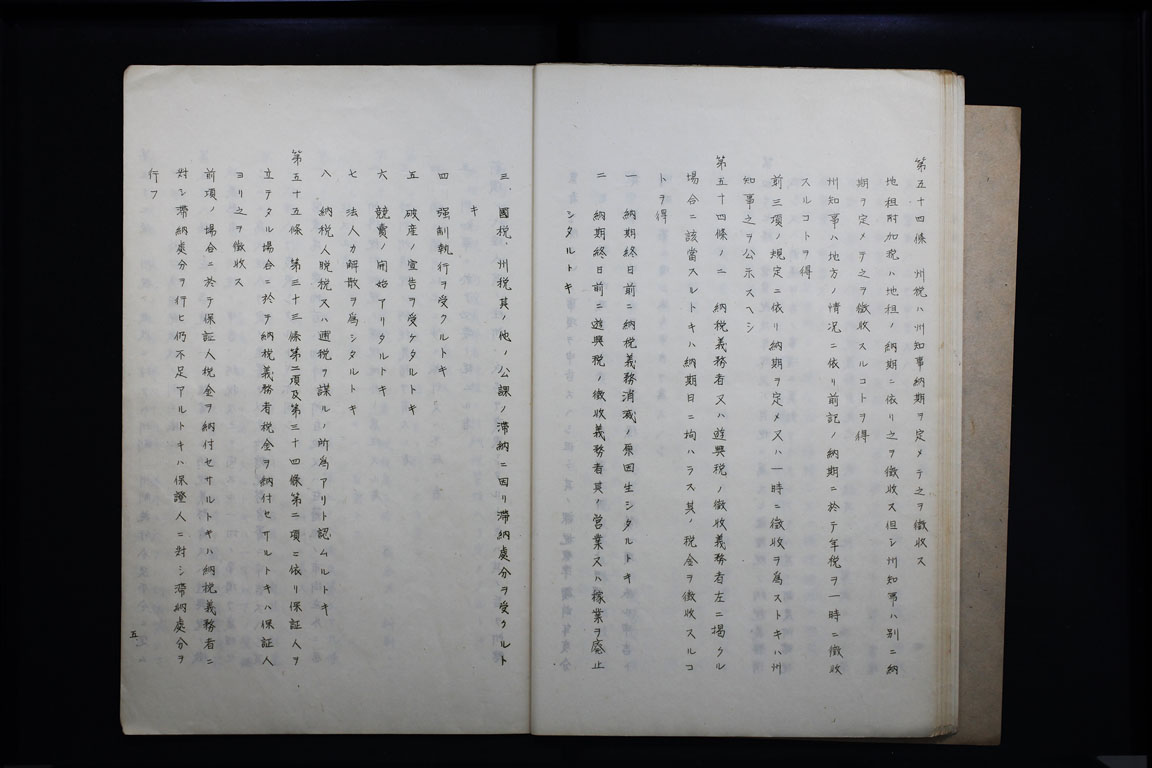 第五十四條　州税ハ州知事納期ヲ定メテ之ヲ徴收ス
地租附加税ハ地租ノ納期ニ依リ之ヲ徴收ス但シ州知事ハ別ニ納
期ヲ定メテ之ヲ徴收スルコトヲ得
州知事ハ地方ノ情况ニ依リ前記ノ納期ニ於テ年税ヲ一時ニ徴收
スルコトヲ得
前三項ノ規定ニ依リ納期ヲ定メ又ハ一時ニ徴收ヲ為ストキハ州
知事之ヲ公示スヘシ
第五十四條ノ二　納税義務者又ハ遊興税ノ徴收義務者左ニ掲クル
場合ニ該當スルトキハ納期日ニ拘ハラス其ノ税金ヲ徴收スルコ
トヲ得
一　納期終日前ニ納税義務消滅ノ原因生シタルトキ
二　納期終日前ニ遊興税ノ徴收義務者其ノ営業又ハ稼業ヲ廢止
シタルトキ
三、國税、州税其ノ他ノ公課ノ滞納ニ因リ滞納處分ヲ受クルト
キ
四　强制執行ヲ受クルトキ
五　破産ノ宣告ヲ受ケタルトキ
六　競賣ノ開始アリタルトキ
七　法人カ解散ヲ為シタルトキ
八　納税人脱税又ハ逋税ヲ謀ルノ所為アリト認ムルトキ
第五十五條　第三十三條第二項及第三十四條第二項ニ依リ保証人ヲ
立テタル場合ニ於テ納税義務者税金ヲ納付セサルトキハ保証人
ヨリ之ヲ徴收ス
前項ノ場合ニ於テ保証人税金ヲ納付セサルトキハ納税義務者ニ
對シ滞納處分ヲ行ヒ仍不足アルトキハ保證人ニ對シ滞納處分ヲ
行フ
五